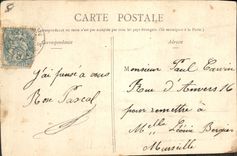 CARTE POSTALE
Correspondance
Adresse
J'ai pensé à vous
Rose Pascal
Monsieur Paul
Rue d'Anvers 16
pour remettre à
Melle Léonie Bergier
Marseille